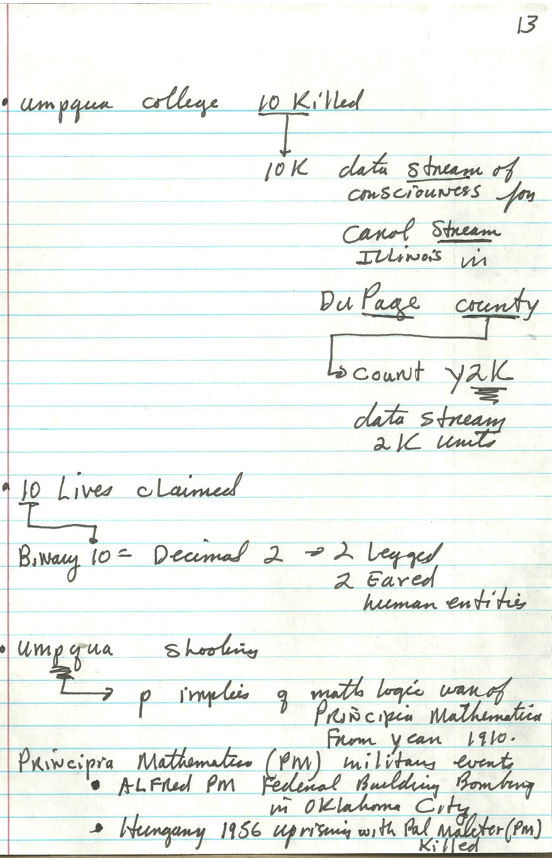 13
• umpqua college 10 Killed
10K data stream of
consciousness for
Carol Stream
ILLiNois in
Du Page county
count y2K
data stream
2K units
• 10 Lives claimed
Binary 10 = Decimal 2 → 2 Legged
2 Eared
human entities
• umpqua shooting
p implies q math logic war of
Principia Mathematica
From year 1910.
Principia Mathematica (PM) military events
• ALFRed PM Federal Building Bombing
in Oklahoma City
• Hungary 1956 uprising with Pal Maleter (PM)
killed